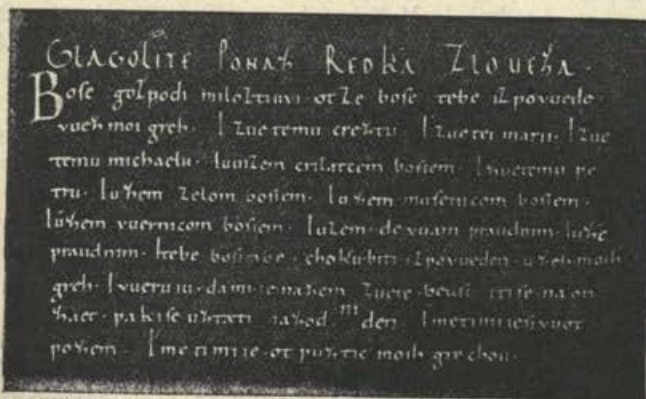 GLAGOLITE PONAZ REDKA ZLOUEZA.
Bose gozpodi miloztiuvi. otze bose. tebe izpovuede.
vuez moi greh. I zuetemu creztu. I zuetei marii. I zue
temu michaelu. Iuuizem crilatcem bosiem. I zuetemu pe
tru. Iuzem zelom bosiem. Iuzem musenicom bosiem.
Iuzem vuernicom bosiem. Iuzem. devuam praudnim. Iuze
praudnim. Itebe bosirabe. chokubiti. izpovueden. uzeh. moih
greh. I vueruiu. dami ie nazem zuete. beusi. iti se. na on
zuet. paki se uztati. nazodni den. Imeti mi ie sivuot
pozem. Imeti mi ie. otpuztic moih grechou.